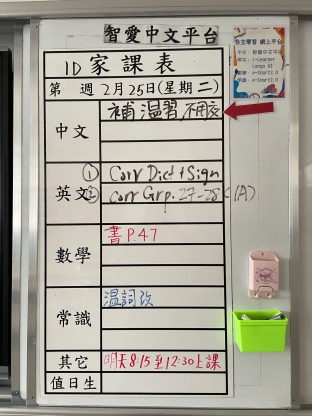 智愛中文平台
1D 家課表
第 週 2月25日(星期二)
中文
補溫習,不用交
英文
① Corr Dict + Sign
② Corr Grp. 27-28 (A)
數學
書 P.47
常識
溫詞改
其它
明天8:15至12:30上課
值日生
自主學習 網上平台